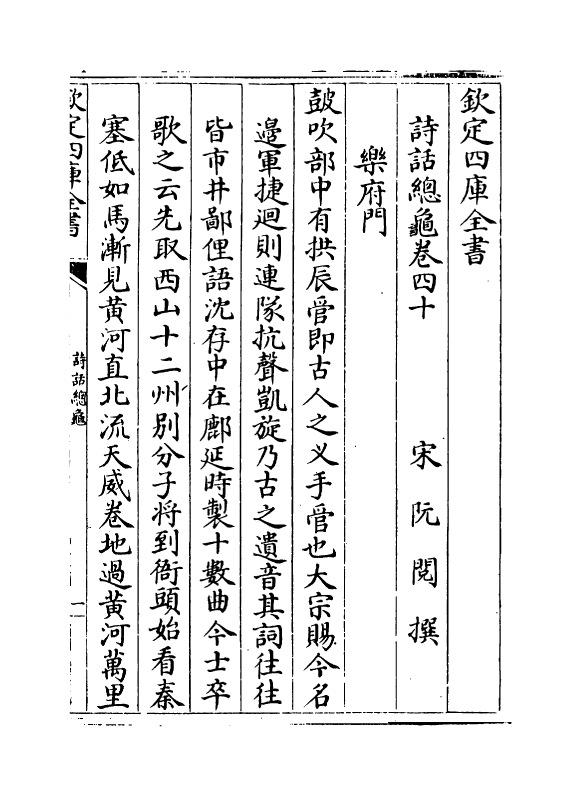 欽定四庫全書
詩話總龜卷四十
宋阮閱撰
樂府門
鼓吹部中有拱辰管即古人之义手管也大宗賜今名
邉軍捷迴則連隊抗聲凱旋乃古之遺音其詞往往
皆市井鄙俚語沈存中在鄜延時製十數曲令士卒
歌之云先取西山十二州别分子將到衙頭始看秦
塞低如馬漸見黄河直北流天威卷地過黄河萬里
欽定四庫全書
詩話總龜
一